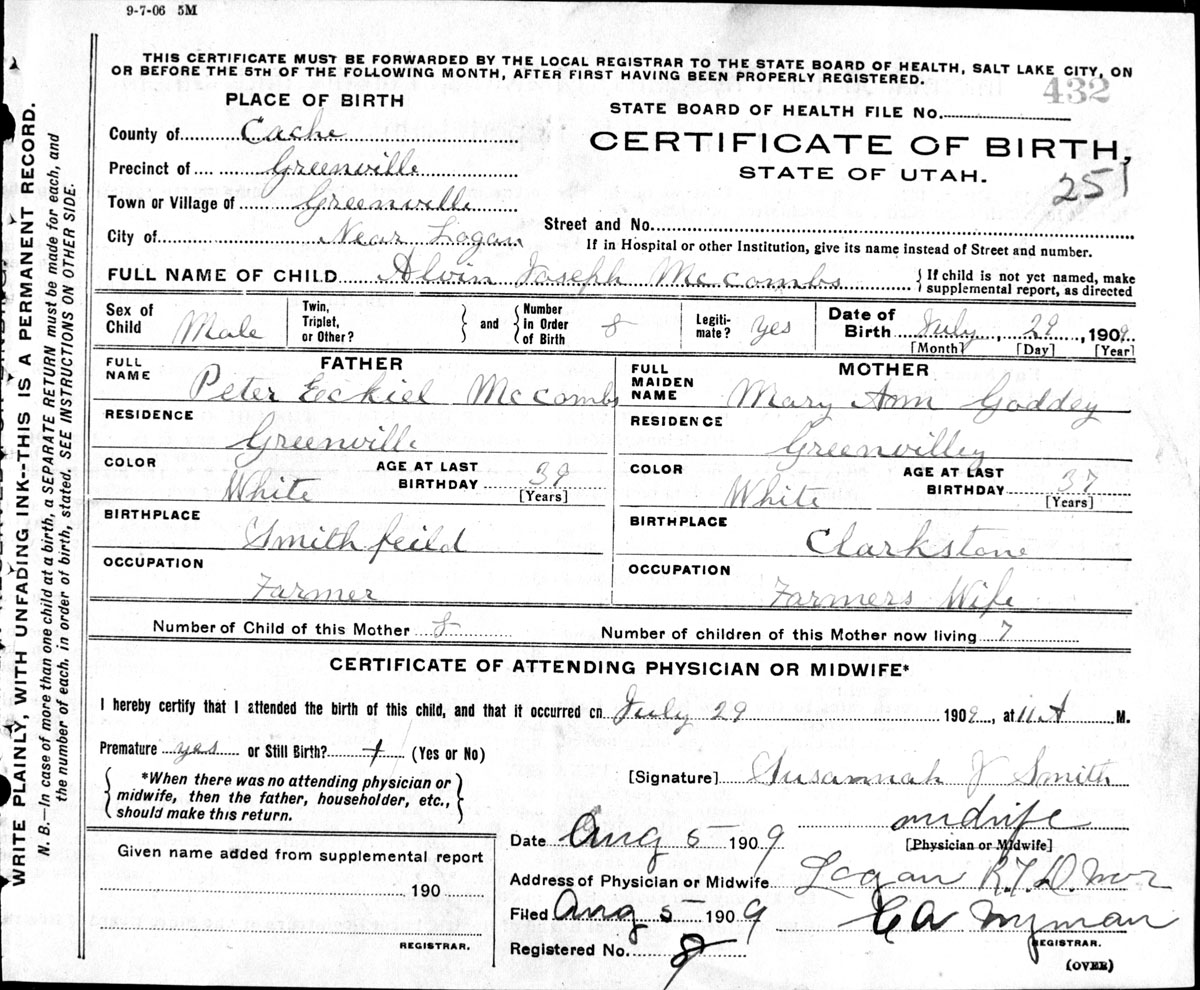 9-7-06 5M
THIS CERTIFICATE MUST BE FORWARDED BY THE LOCAL REGISTRAR TO THE STATE BOARD OF HEALTH, SALT LAKE CITY, ON
OR BEFORE THE 5TH OF THE FOLLOWING MONTH, AFTER FIRST HAVING BEEN PROPERLY REGISTERED.
432
PLACE OF BIRTH
STATE BOARD OF HEALTH FILE NO.
County of Cache
CERTIFICATE OF BIRTH,
STATE OF UTAH.
251
Precinct of Greenville
Town or Village of Greenville
Street and No.
City of Near Logan
If in Hospital or other Institution, give its name instead of Street and number.
FULL NAME OF CHILD Alvin Joseph McCombs
{ If child is not yet named, make
supplemental report, as directed
Sex of Child Male
Twin, Triplet, or Other?
} and { Number in Order of Birth 8
Legiti-mate? yes
Date of Birth July 29, 1909
[Month] [Day] [Year]
FATHER
FULL NAME Peter Eckiel McCombs
MOTHER
FULL MAIDEN NAME Mary Ann Goddey
RESIDENCE Greenville
RESIDENCE Greenvilley
COLOR White AGE AT LAST BIRTHDAY 39 [Years]
COLOR White AGE AT LAST BIRTHDAY 37 [Years]
BIRTHPLACE Smithfeild
BIRTHPLACE Clarkstone
OCCUPATION Farmer
OCCUPATION Farmers Wife
Number of Child of this Mother 8
Number of children of this Mother now living 7
CERTIFICATE OF ATTENDING PHYSICIAN OR MIDWIFE*
I hereby certify that I attended the birth of this child, and that it occurred on July 29 1909, at 11 A M.
Premature yes or Still Birth? (Yes or No)
*When there was no attending physician or
midwife, then the father, householder, etc.,
should make this return.
[Signature] Susannah J Smith
midwife
[Physician or Midwife]
Date Aug 5 1909
Given name added from supplemental report
190
REGISTRAR.
Address of Physician or Midwife Logan R.F.D.
Filed Aug 5 1909
REGISTRAR.
Registered No. 8
(OVER)
WRITE PLAINLY, WITH UNFADING INK--THIS IS A PERMANENT RECORD.
N. B.—In case of more than one child at a birth, a SEPARATE RETURN must be made for each, and
the number of each, in order of birth, stated. SEE INSTRUCTIONS ON OTHER SIDE.